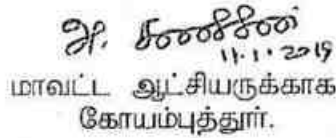 11.1.2019
மாவட்ட ஆட்சியருக்காக
கோயம்புத்தூர்.